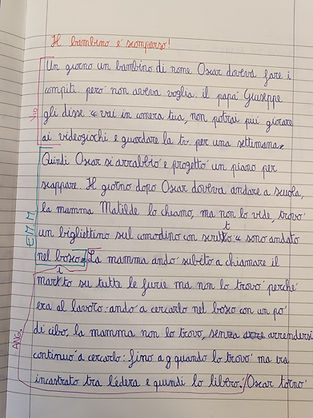 Il bambino è scomparso!
Un giorno un bambino di nome Oscar doveva fare i
compiti però non aveva voglia. il papà Giuseppe
gli disse « vai in camera tua, non potrai più giocare
ai videogiochi e guardare la tv per una settimana»
Quindi Oscar si arrabbiò e progettò un piano per
scappare. Il giorno dopo Oscar doveva andare a scuola,
la mamma Matilde lo chiamò, ma non lo vide, trovò
un bigliettino sul comodino con scritto: « sono andato
nel bosco». La mamma andò subito a chiamare il
marito su tutte le furie ma non lo trovò perché
era al lavoro: andò a cercarlo nel bosco con un po'
di cibo, la mamma non lo trovò, senza arrendersi
continuò a cercarlo: fino a quando lo trovò ma era
incastrato tra l'edera e quindi lo liberò. Oscar tornò
EMM